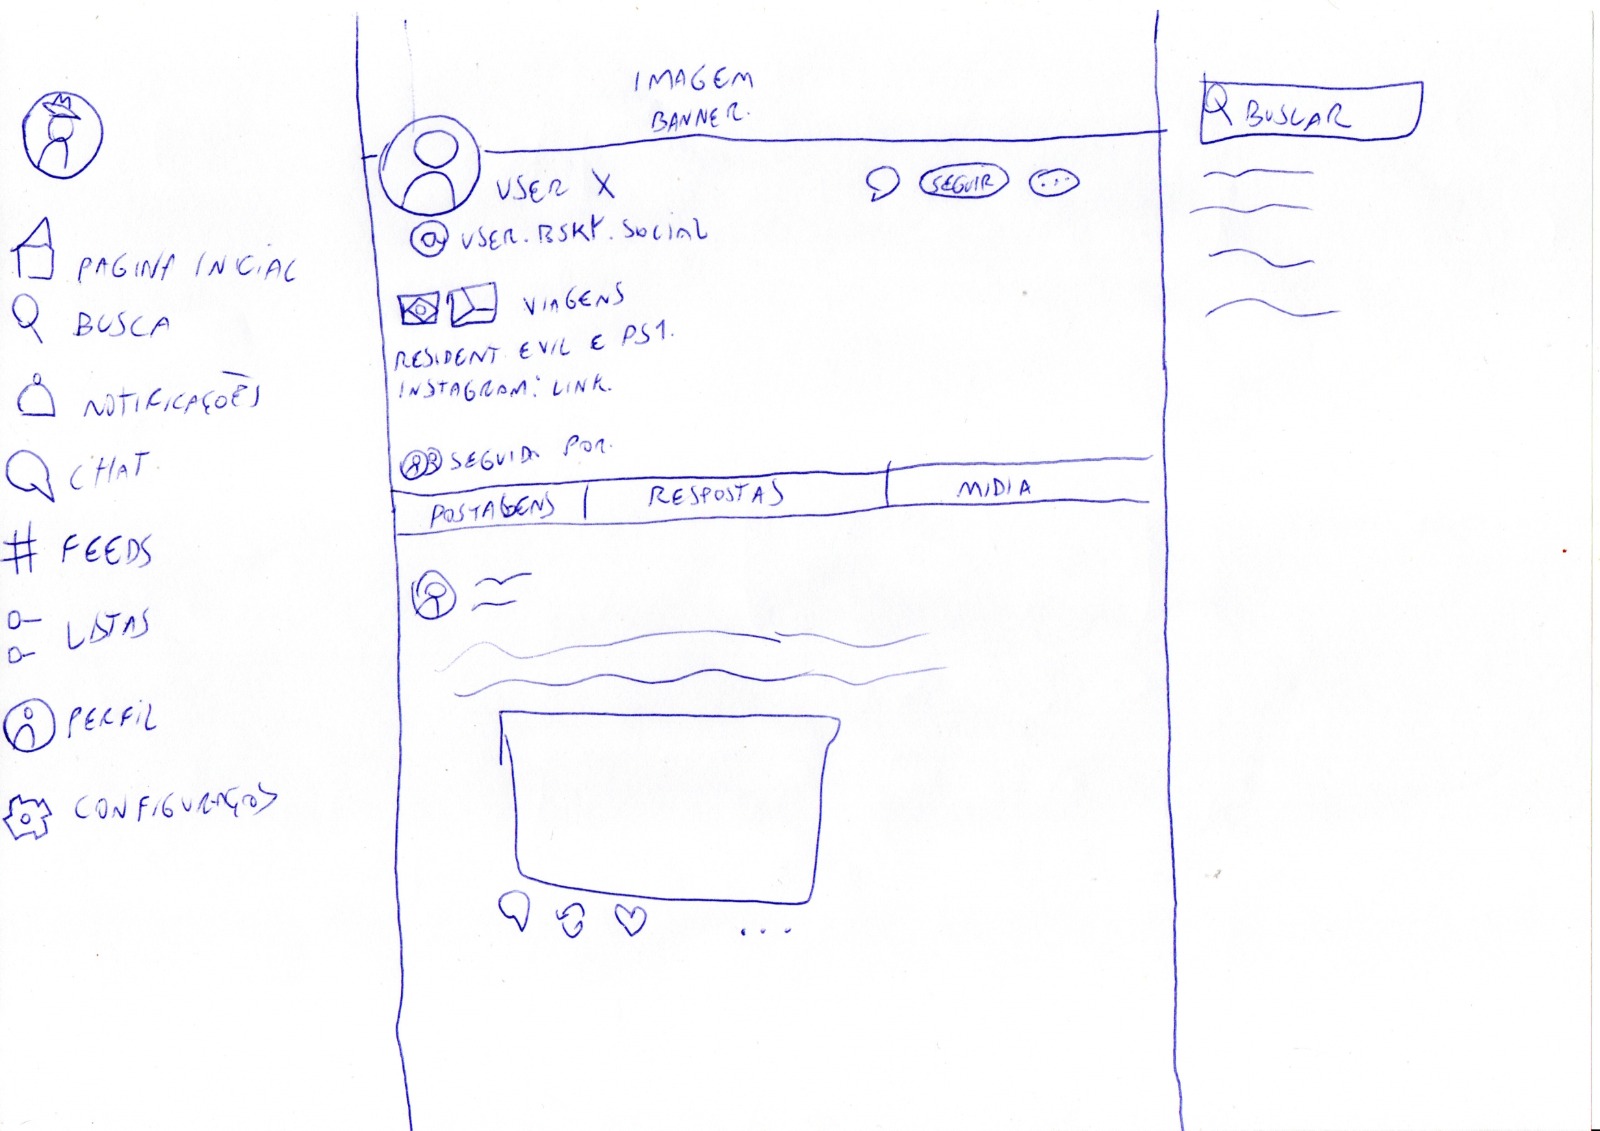 PAGINA INICIAL
BUSCA
NOTIFICAÇÕES
CHAT.
# FEEDS
LISTAS
PERFIL
CONFIGURAÇOS
IMAGEM
BANNER.
USER X
SEGUIR
...
@ USER.BSKY.SOCIAL
VIAGENS
RESIDENT EVIL E PS1.
INSTAGRAM: LINK.
SEGUIDA POR.
POSTAGENS | RESPOSTAS | MIDIA
...
BUSCAR